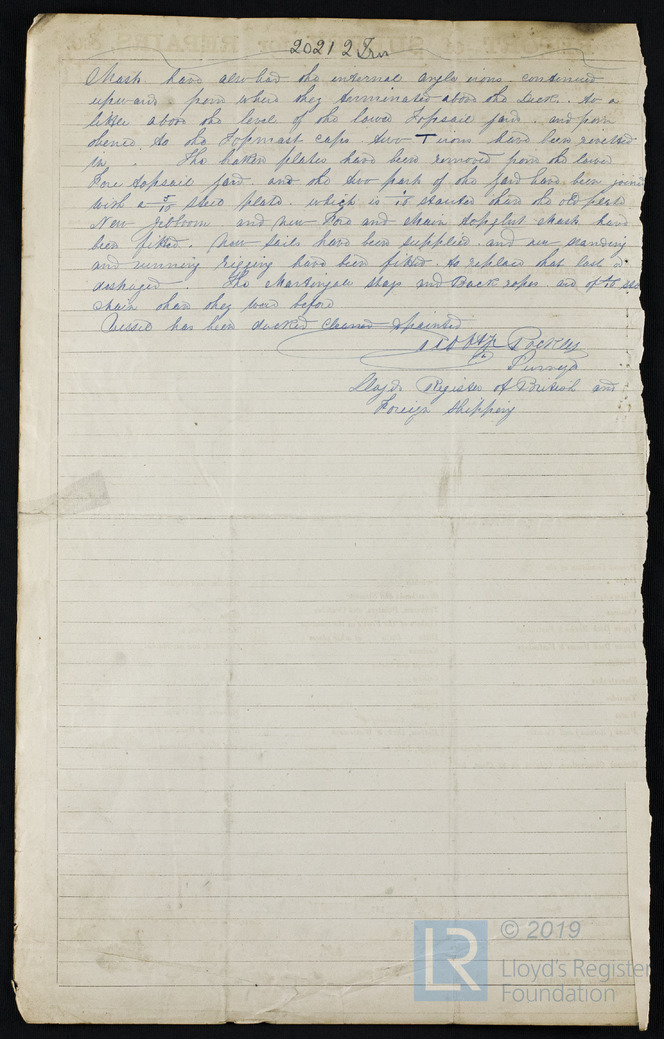 20212 Iron
Mast have also had the internal angle irons continued
upwards from where they terminated above the Deck to a
little above the level of the lower Topsail yard and from
thence to the Topmast caps two T irons have been riveted
in. The broken plates have been removed from the lower
Fore topsail yard and the two parts of the yard have been joined
with a steel plate which is stouter than the old plate
New jibboom and new Fore and Main topglnt Masts have
been fitted. New sails have been supplied and new standing
and running rigging have been fitted to replace that lost or
damaged. The Martingale stays and Back ropes are of
chain than they were before
Vessel has been docked cleaned & painted
Pockley
Surveyor
Lloyds Register of British and
Foreign Shipping
REPORT of SURVEY for REPAIRS, &c.
LR
© 2019
Lloyd's Register
Foundation